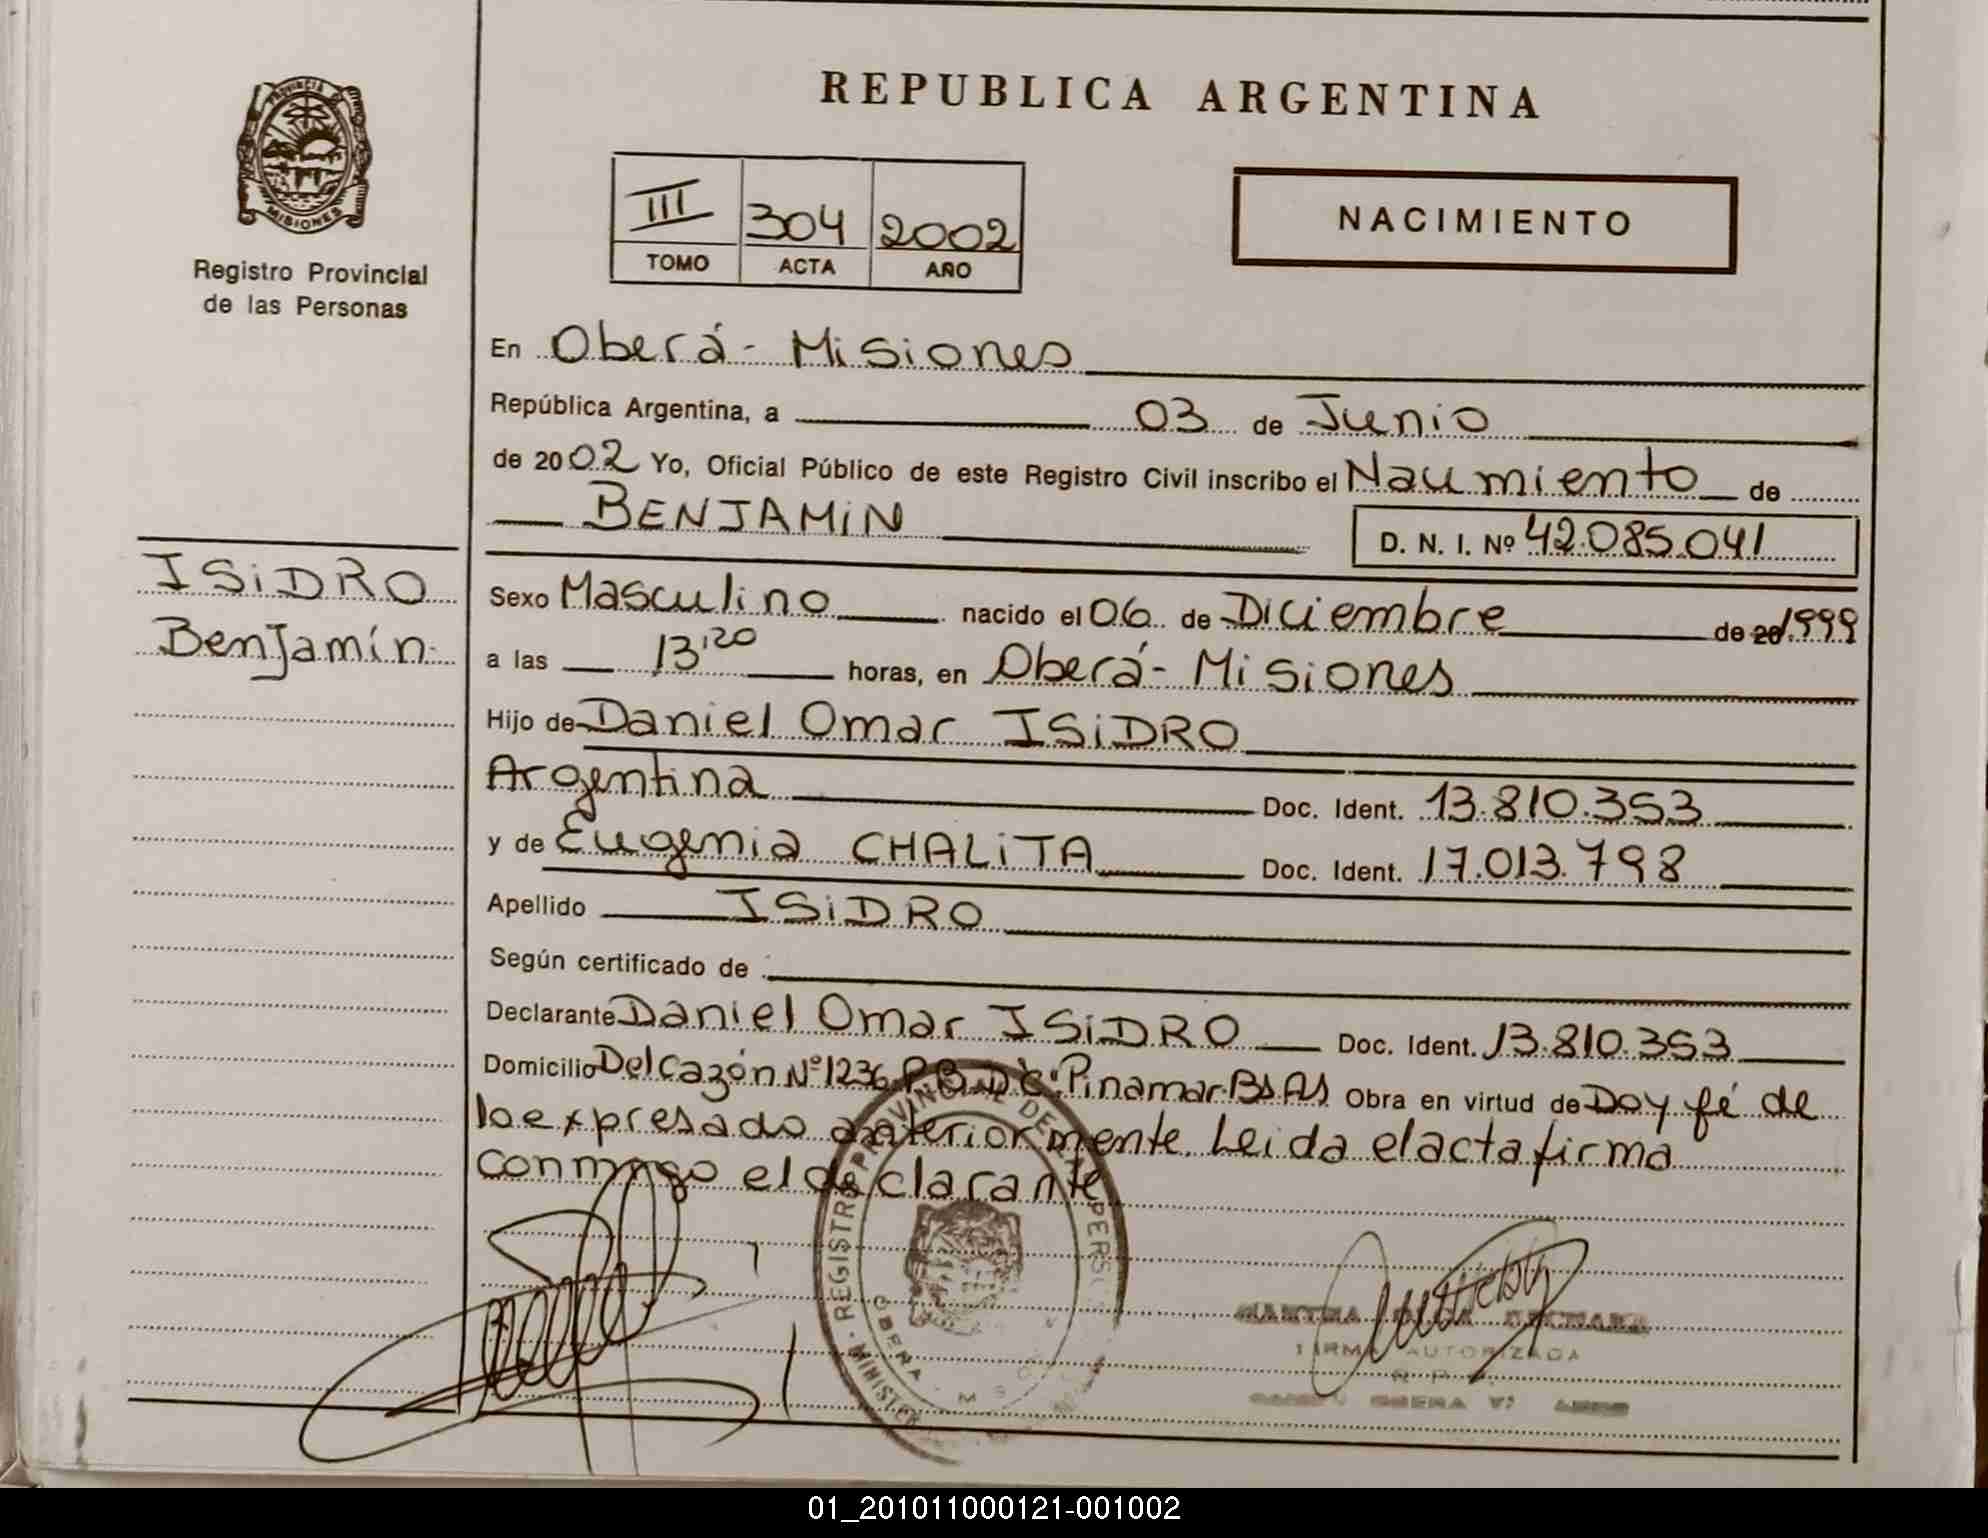 REPUBLICA ARGENTINA
PROVINCIA DE
MISIONES
Registro Provincial
de las Personas
III 304 2002
TOMO ACTA AÑO
NACIMIENTO
En Oberá - Misiones
República Argentina, a 03 de Junio
de 2002 Yo, Oficial Público de este Registro Civil inscribo el Nacimiento de
BENJAMIN
D. N. I. Nº 42.085.041
ISIDRO
Benjamín.
Sexo Masculino nacido el 06 de Diciembre de 20 1999
a las 13,20 horas, en Oberá - Misiones
Hijo de Daniel Omar ISIDRO
Argentina Doc. Ident. 13.810.353
y de Eugenia CHALITA Doc. Ident. 17.013.798
Apellido ISIDRO
Según certificado de
Declarante Daniel Omar ISIDRO Doc. Ident. 13.810.353
Domicilio Del Cazón Nº 1236 P.B. D "C" Pinamar Bs As Obra en virtud de Doy fé de
lo expresado anteriormente. Leida el acta firma
conmigo el declarante
REGISTRO PROVINCIAL DE LAS PERS
OBERA
FIRMA AUTORIZADA
01_201011000121-001002